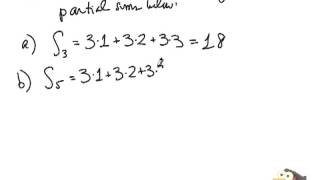 partial sums below.
a) S₃ = 3·1 + 3·2 + 3·3 = 18
b) S₅ = 3·1 + 3·2 + 3·2